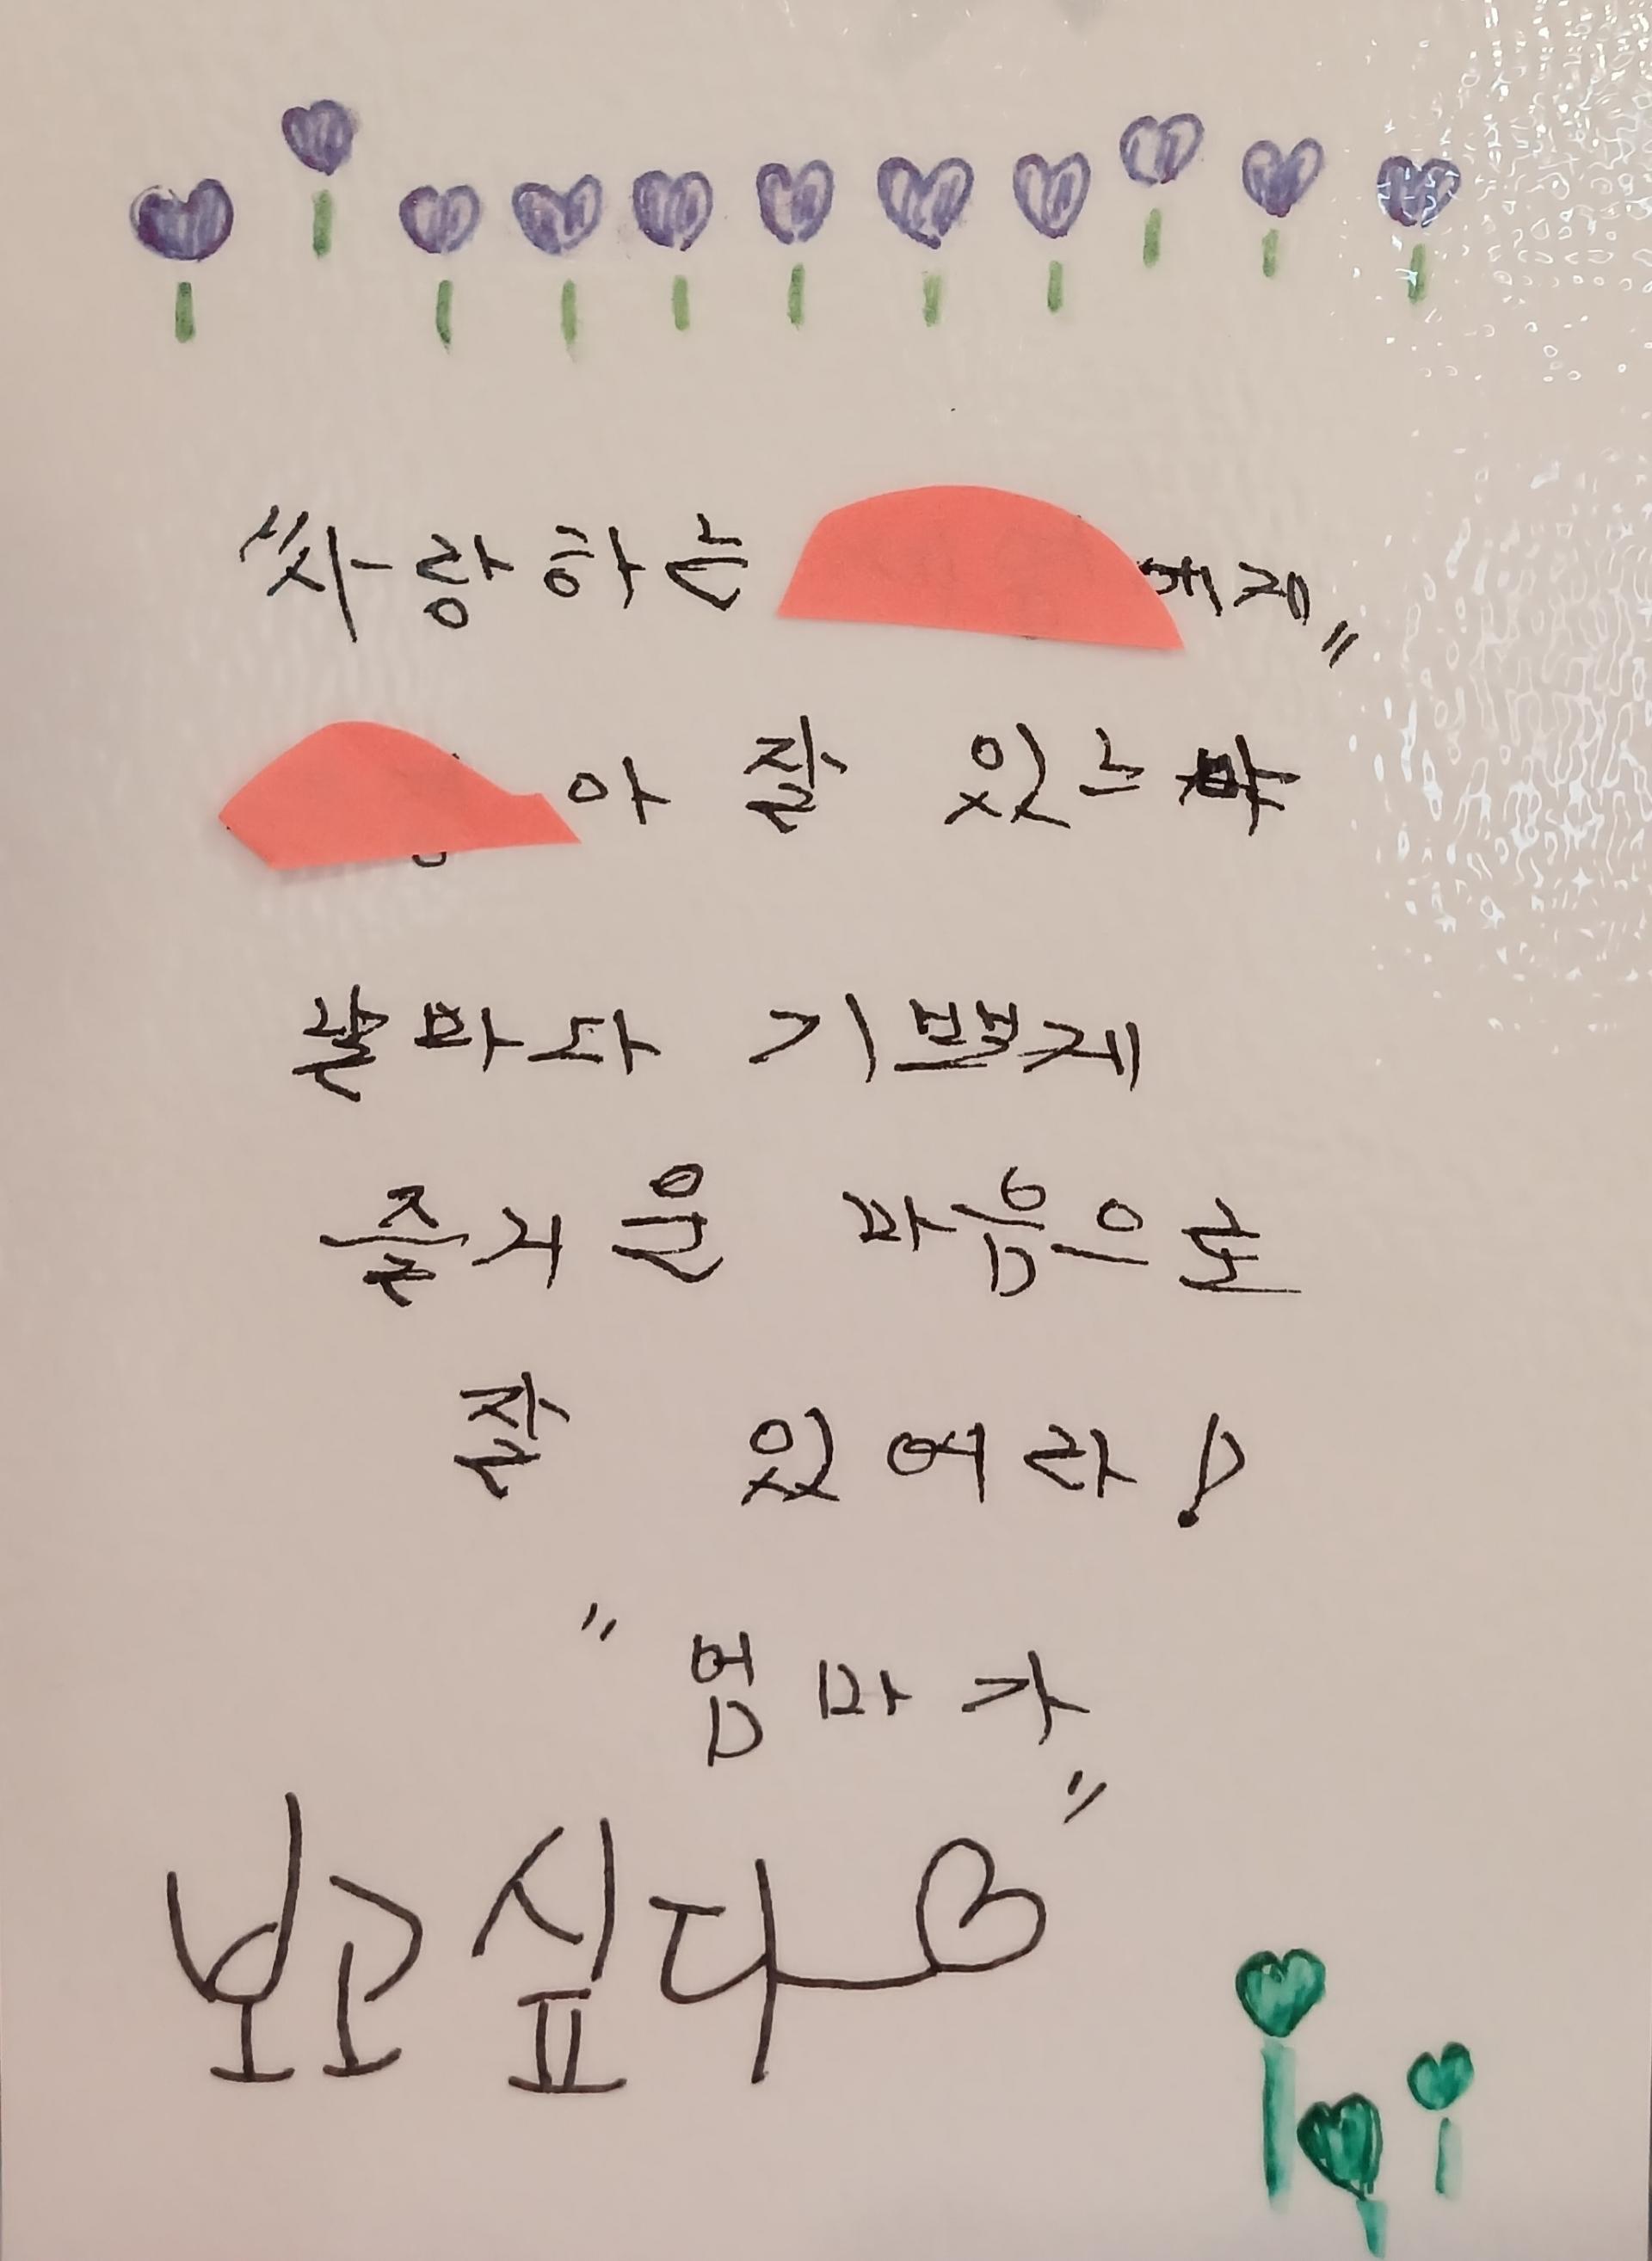 "사랑하는 에게"
아 잘 있느냐
날마다 기쁘게
즐거운 마음으로
잘 있어라!
"엄마가"
보고싶다